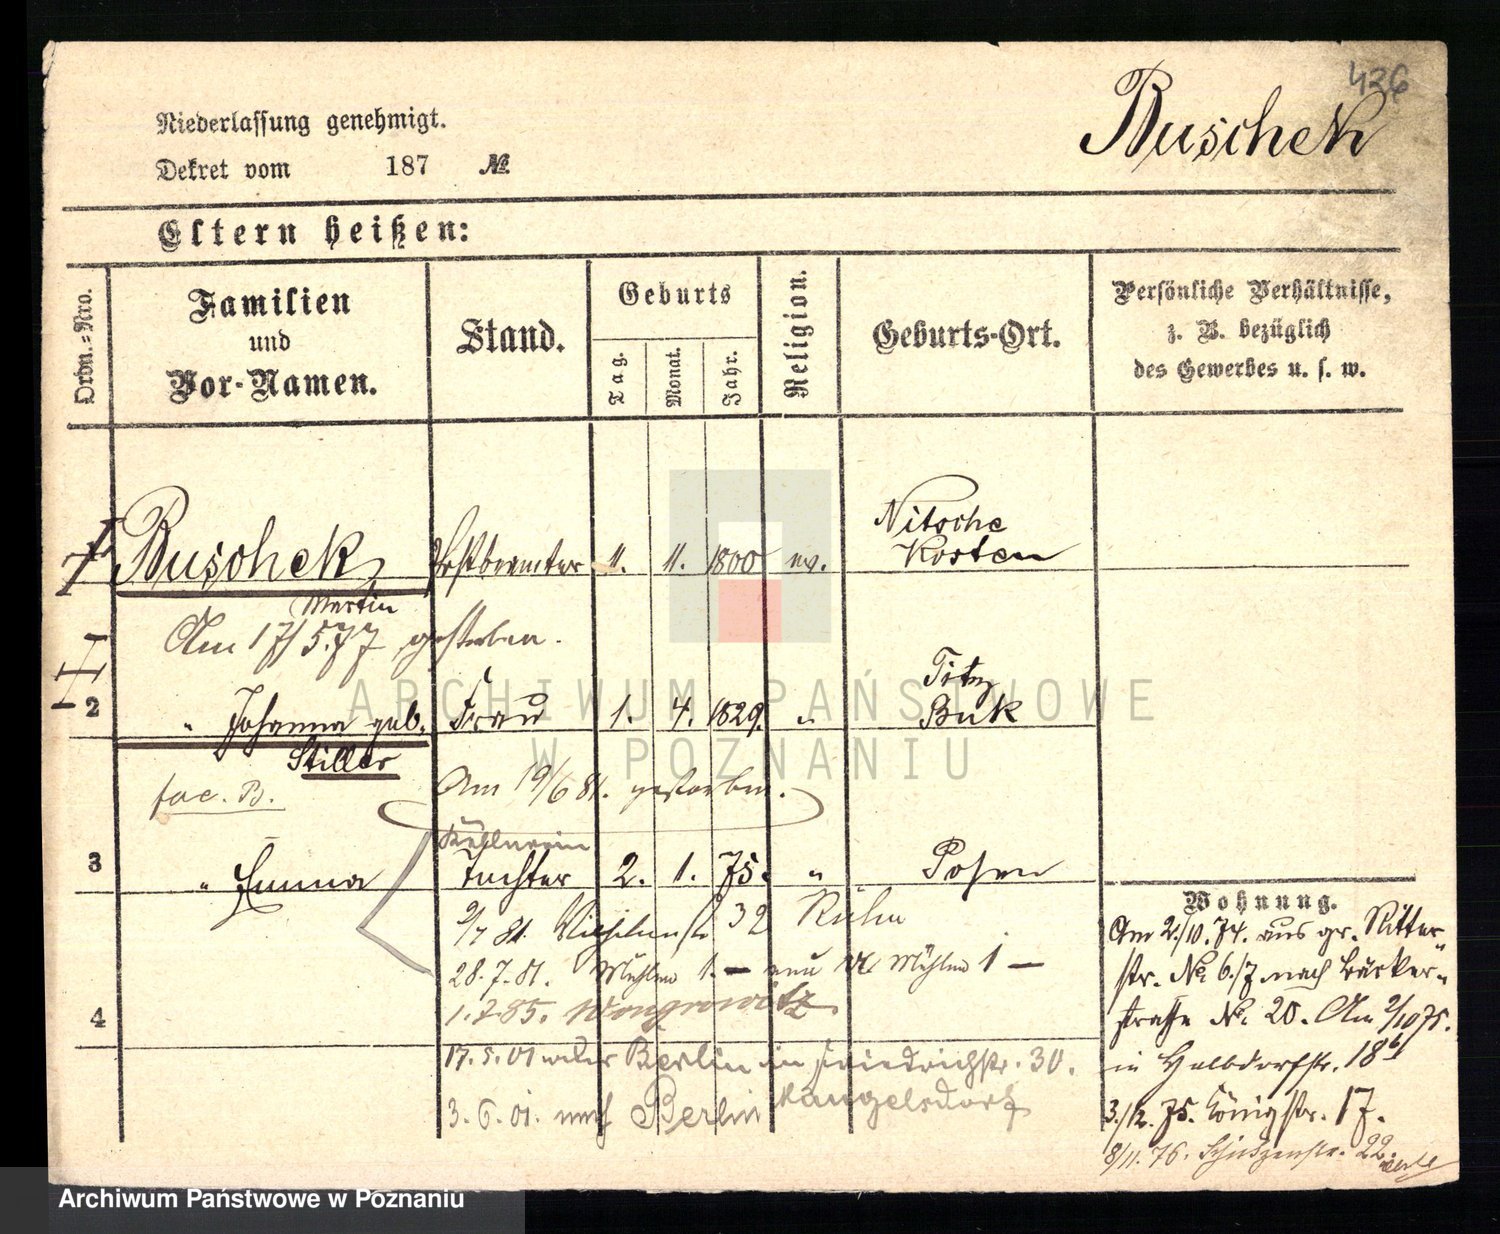 436
Buschek
Niederlassung genehmigt.
Dekret vom 187 №
Eltern heißen:
Ordn.-Nro.
Familien
und
Vor-Namen.
Stand.
Geburts
Tag.
Monat.
Jahr.
Religion.
Geburts-Ort.
Persönliche Verhältnisse,
z. B. bezüglich
des Gewerbes u. s. w.
Buschek,
Martin
11. 11. 1800 ev.
Nitsche
Kosten
Am 17/5.77 gestorben.
2 " Johanna geb. Frau 1. 4. 1829. "
Stiller
Buk
fac. B.
Am 19/6 81. gestorben.
3 " Emma Tochter 2. 1. 75. " Posen
2/7 81. 32
28.7.81. Mühlen 1. — Mühlen 1 —
4
1.7.85. Wongrowitz
17.5.01 Berlin in Friedrichstr. 30.
3.6.01. nach Berlin
Wohnung.
Am 2/10.74. aus gr. Ritter
str. № 6/7 nach Bäcker-
straße № 20. Am 2/10 75.
in Halbdorfstr. 18
3./12.75. Königstr. 17.
8/11.76. Schützenstr. 22.
ARCHIWUM PAŃSTWOWE
W POZNANIU
Archiwum Państwowe w Poznaniu